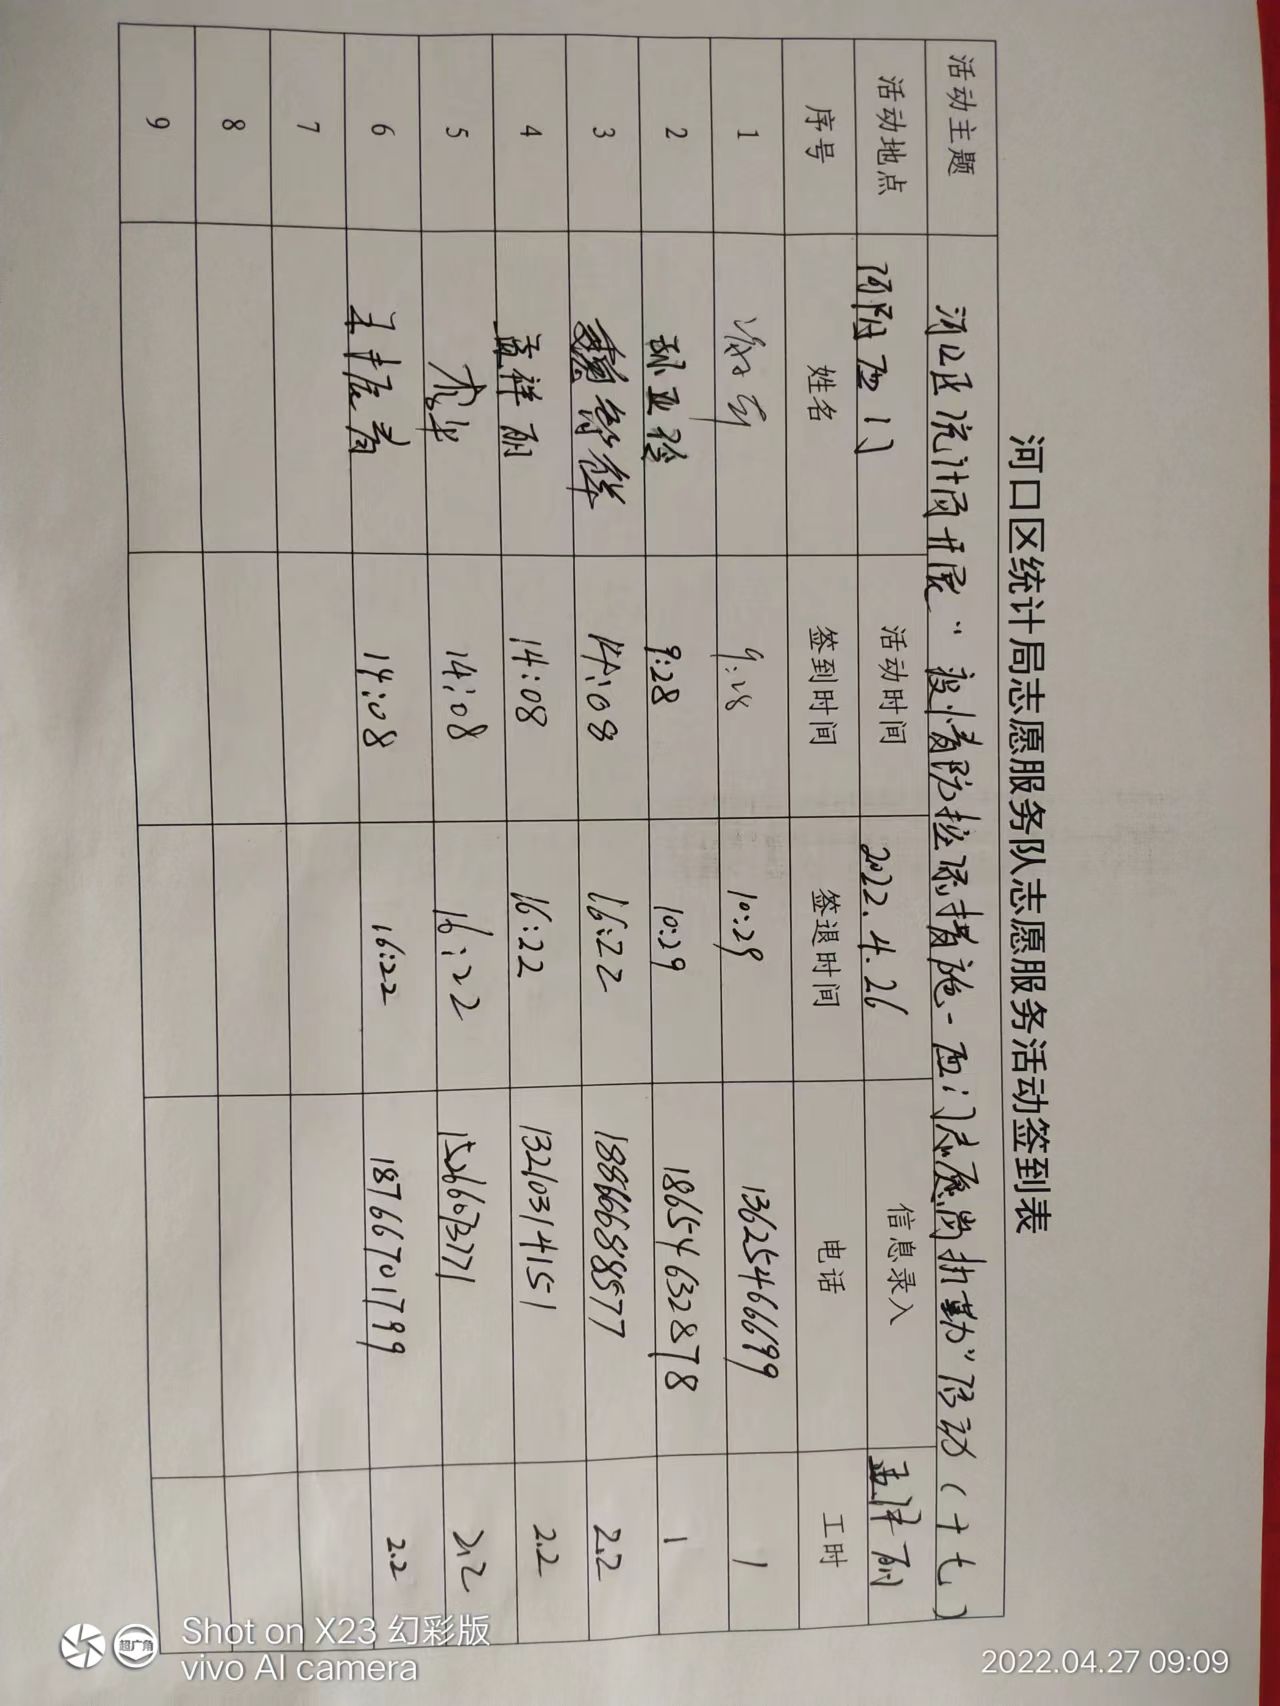 河口区统计局志愿服务队志愿服务活动签到表
活动主题 河口区统计局开展“疫情防控强措施-西门志愿岗执勤”活动(十七)
活动地点 河附西门 活动时间 2022.4.26 信息录入 孟祥丽
序号 姓名 签到时间 签退时间 电话 工时
1 9:28 10:29 13625466699 1
2 9:28 10:29 18654632878 1
3 14:08 16:22 18866688577 2.2
4 孟祥丽 14:08 16:22 13210314151 2.2
5 李华 14:08 16:22 2.2
6 14:08 16:22 18766701799 2.2
7
8
9
超广角
Shot on X23 幻彩版
vivo AI camera
2022.04.27 09:09